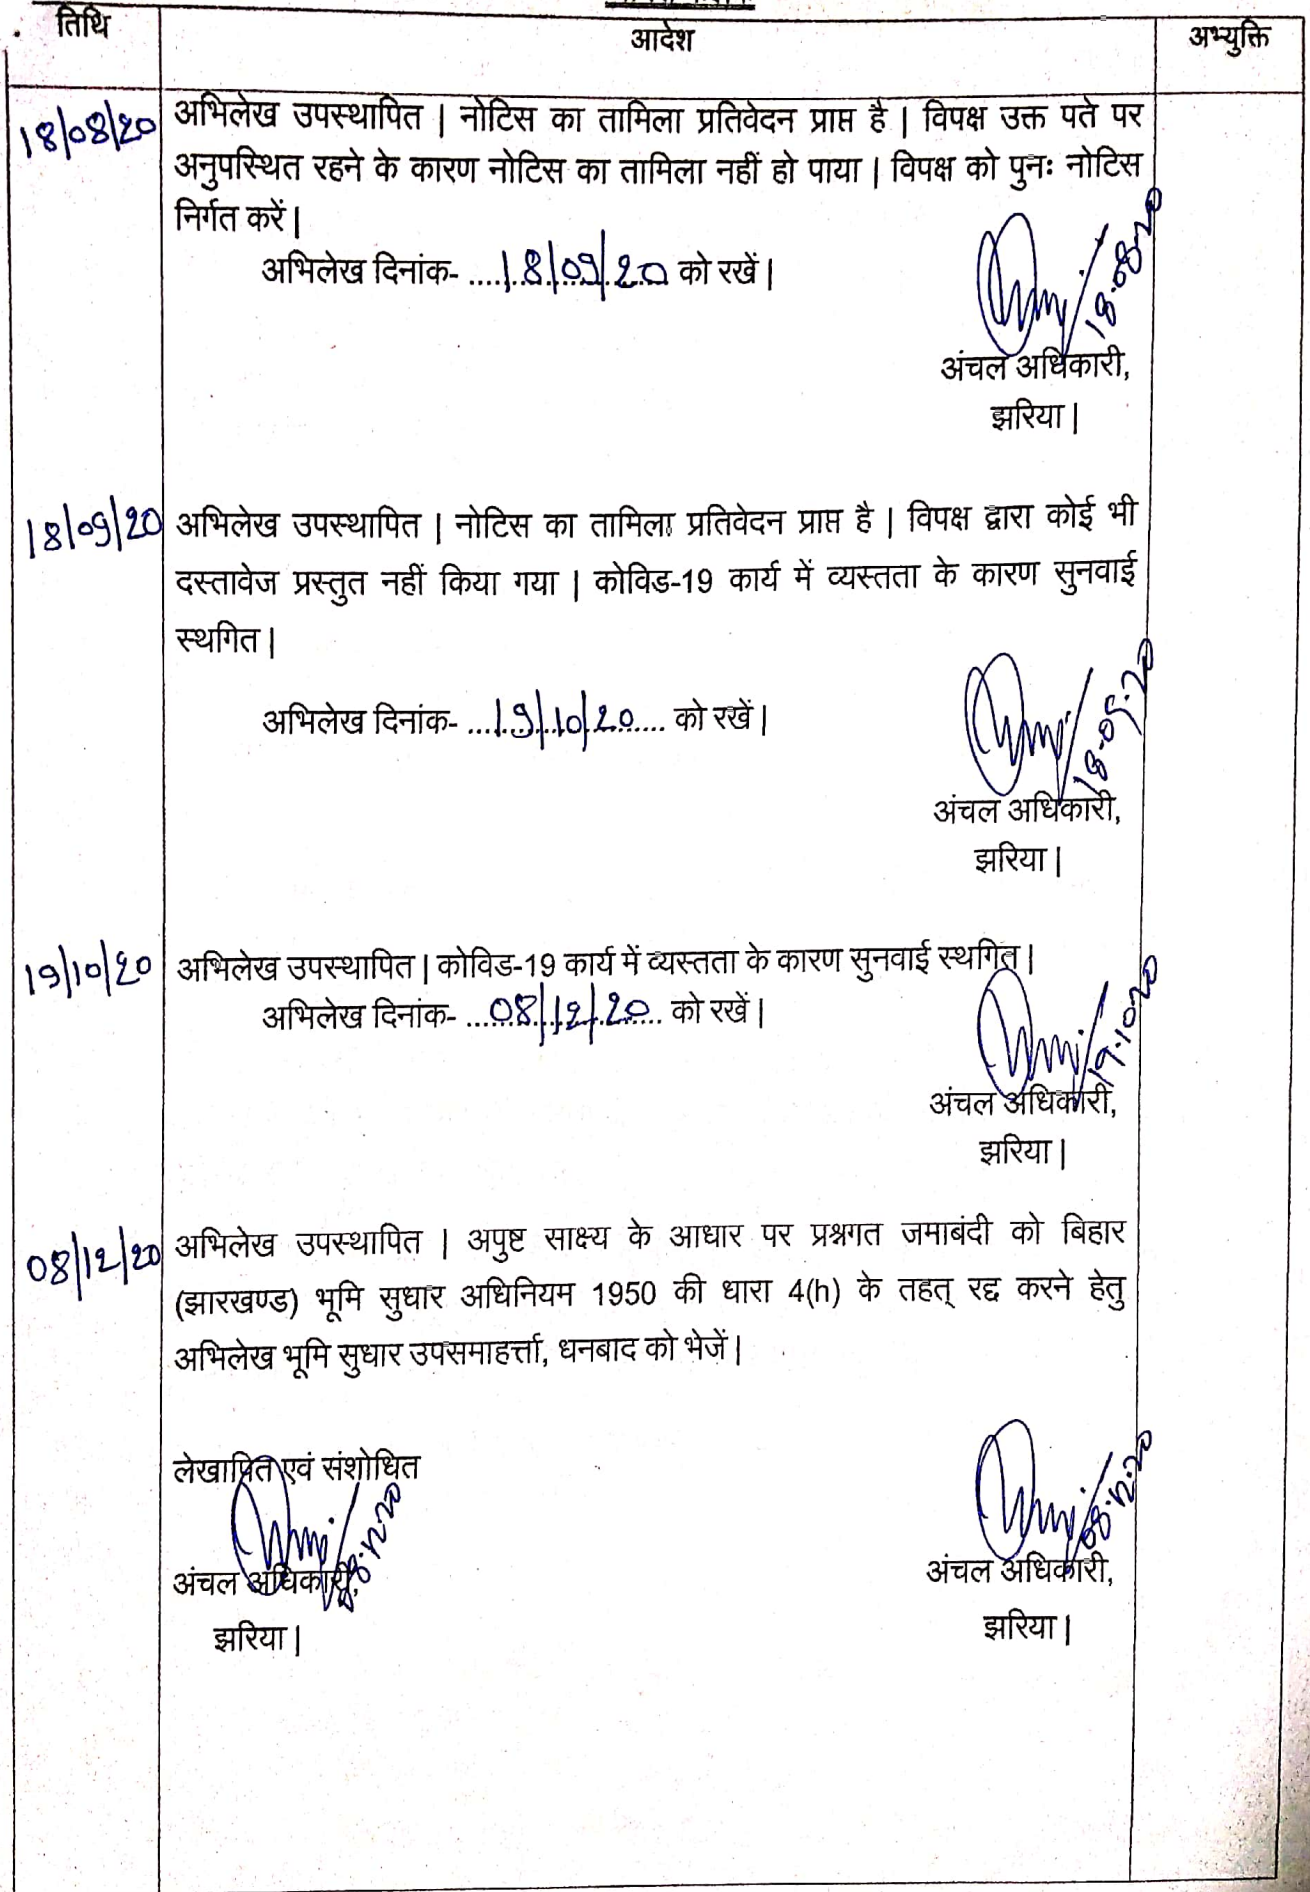 तिथि आदेश अभ्युक्ति
18/08/20 अभिलेख उपस्थापित | नोटिस का तामिला प्रतिवेदन प्राप्त है | विपक्ष उक्त पते पर
अनुपस्थित रहने के कारण नोटिस का तामिला नहीं हो पाया | विपक्ष को पुनः नोटिस
निर्गत करें |
अभिलेख दिनांक- ....18/09/20 को रखें |
18.08.20
अंचल अधिकारी,
झरिया |
18/09/20 अभिलेख उपस्थापित | नोटिस का तामिला प्रतिवेदन प्राप्त है | विपक्ष द्वारा कोई भी
दस्तावेज प्रस्तुत नहीं किया गया | कोविड-19 कार्य में व्यस्तता के कारण सुनवाई
स्थगित |
अभिलेख दिनांक- ....19/10/20.... को रखें |
अंचल अधिकारी,
झरिया |
19/10/20 अभिलेख उपस्थापित | कोविड-19 कार्य में व्यस्तता के कारण सुनवाई स्थगित |
अभिलेख दिनांक- ....08/12/20.... को रखें |
19.10.20
अंचल अधिकारी,
झरिया |
08/12/20 अभिलेख उपस्थापित | अपुष्ट साक्ष्य के आधार पर प्रश्नगत जमाबंदी को बिहार
(झारखण्ड) भूमि सुधार अधिनियम 1950 की धारा 4(h) के तहत् रद्द करने हेतु
अभिलेख भूमि सुधार उपसमाहर्त्ता, धनबाद को भेजें |
लेखापित एवं संशोधित
08.12.20 08.12.20
अंचल अधिकारी, अंचल अधिकारी,
झरिया | झरिया |